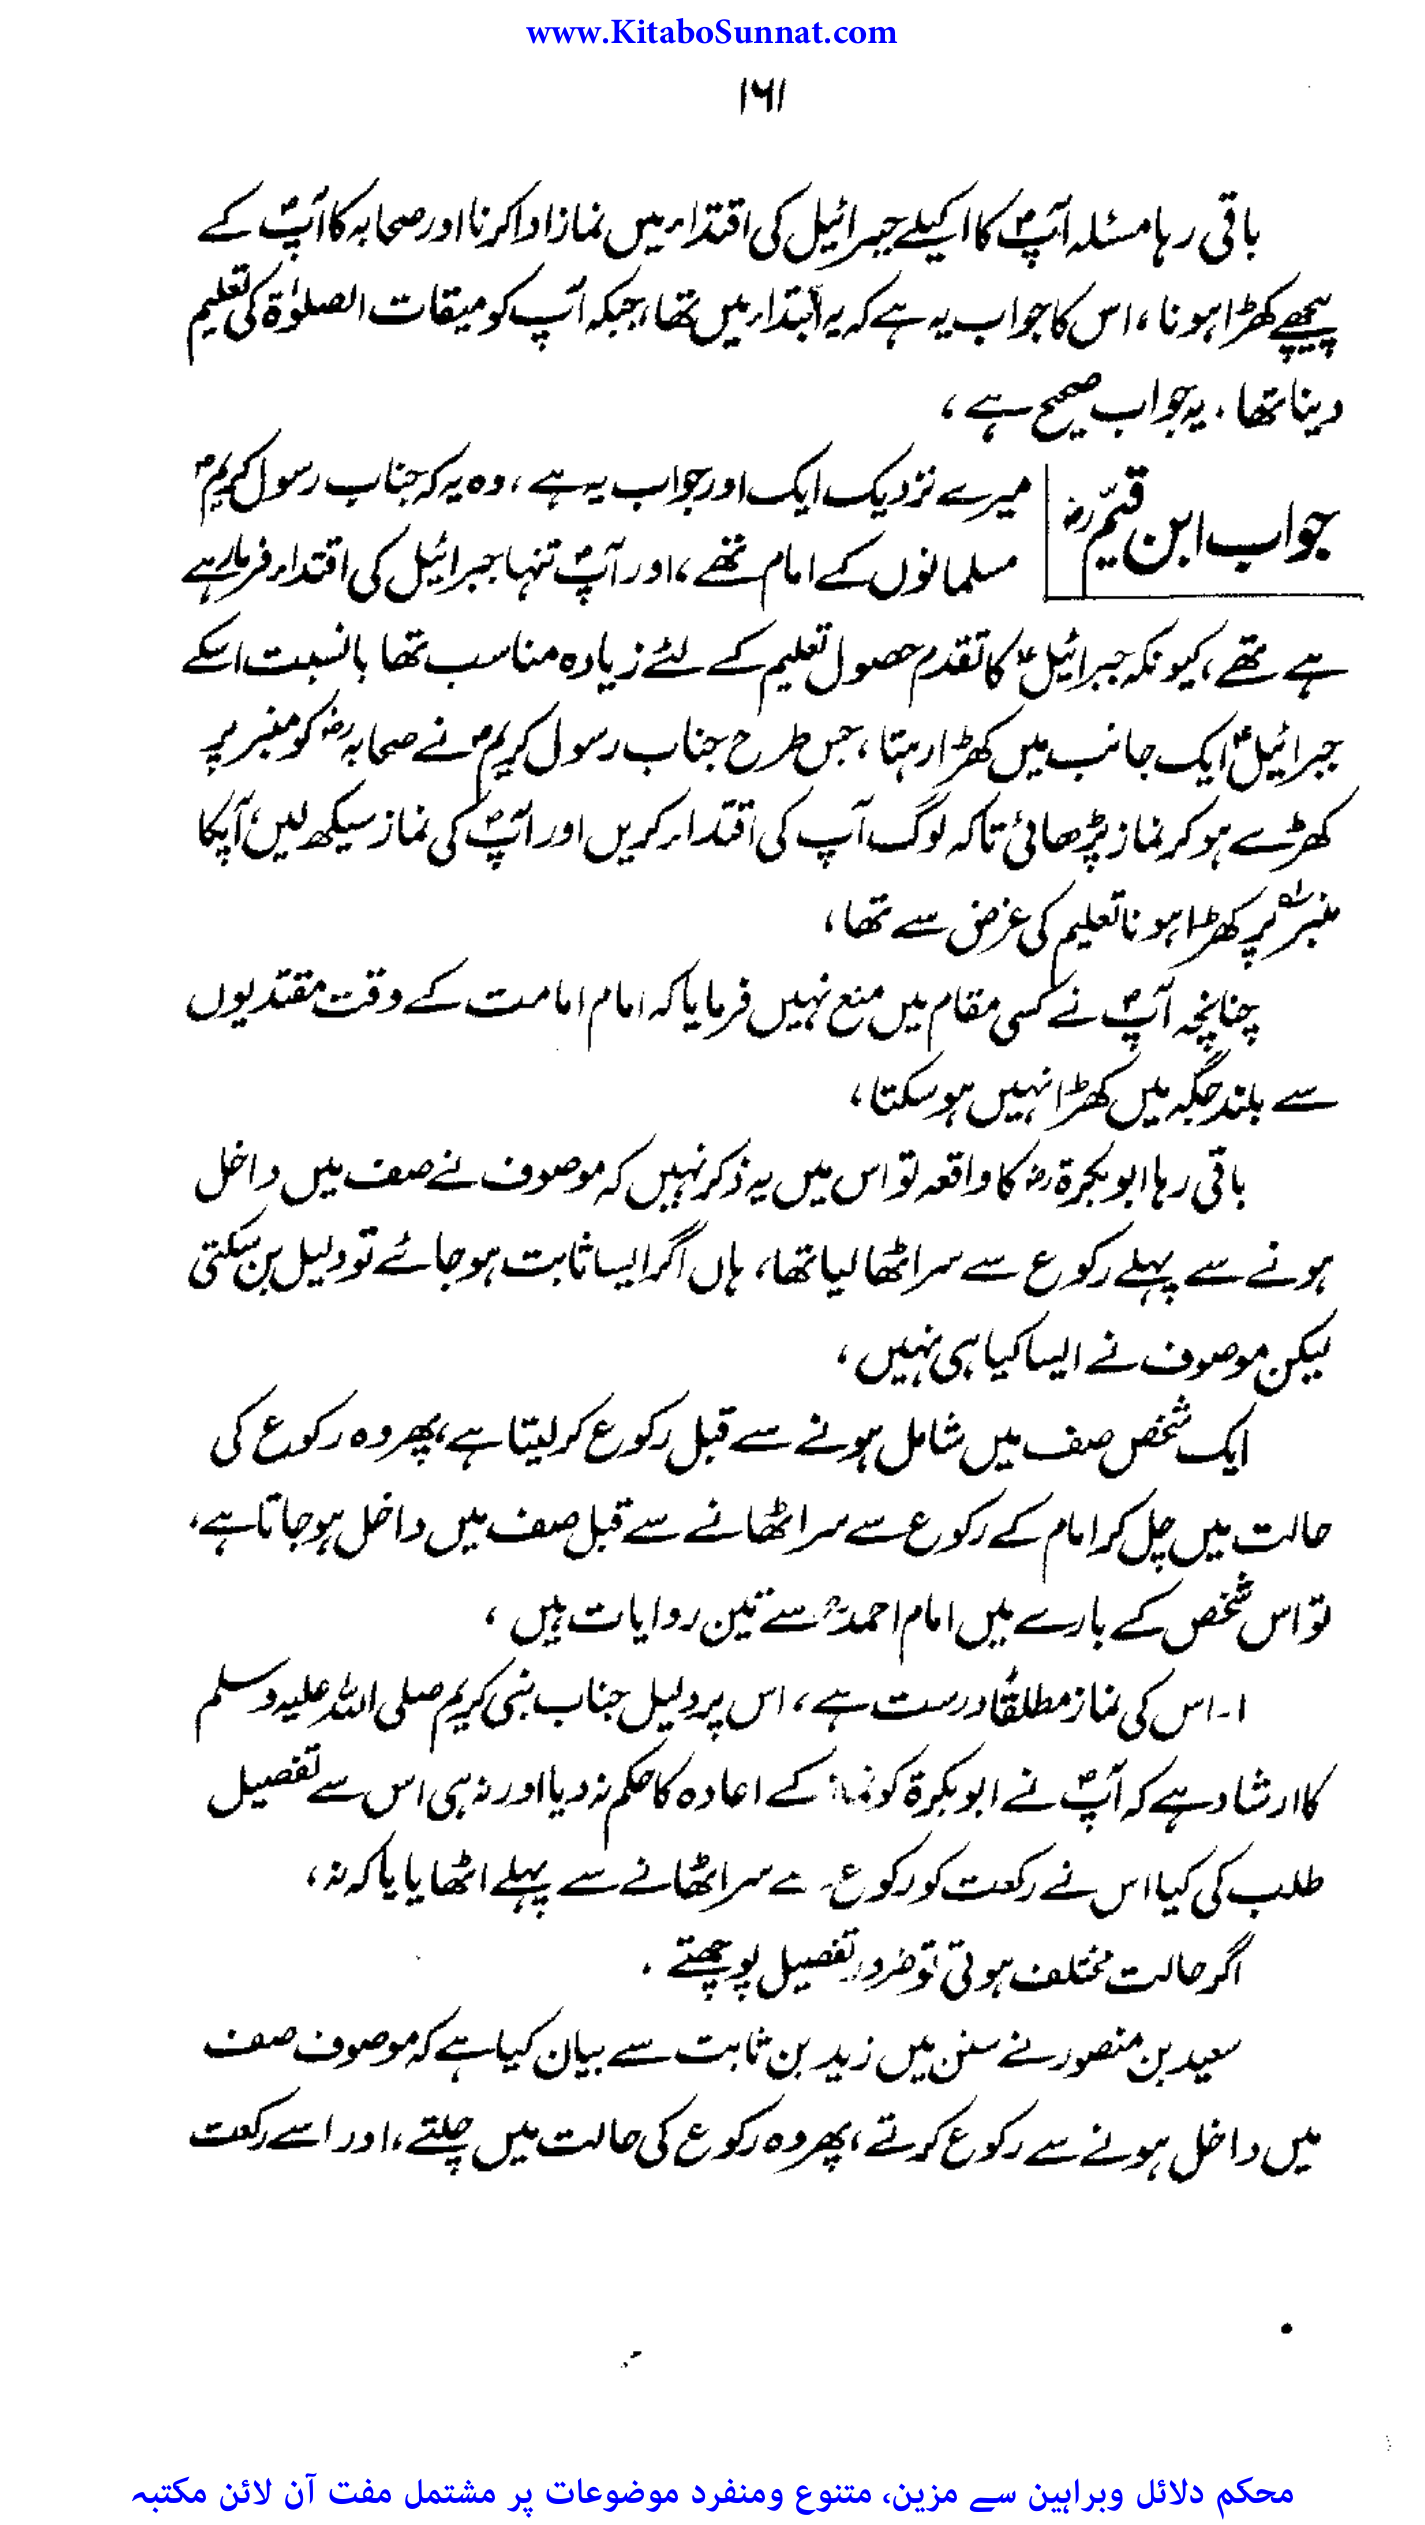 www.KitaboSunnat.com
۱۶۱
باقی رہا مسئلہ آپؐ کا اکیلے جبرائیل کی اقتداء میں نماز ادا کرنا اور صحابہ کا آپؐ کے
پیچھے کھڑا ہونا، اس کا جواب یہ ہے کہ یہ ابتداء میں تھا، جبکہ آپ کو میقات الصلوٰۃ کی تعلیم
دینا تھا۔ یہ جواب صحیح ہے،
جواب ابن قیّمؒ
میرے نزدیک ایک اور جواب یہ ہے، وہ یہ کہ جناب رسول کریمؐ
مسلمانوں کے امام تھے، اور آپؐ تنہا جبرائیل کی اقتداء فرما رہے
ہے تھے، کیونکہ جبرائیلؑ کا تقدم حصول تعلیم کے لئے زیادہ مناسب تھا بالنسبت اسکے
جبرائیلؑ ایک جانب میں کھڑا رہتا، جس طرح جناب رسول کریمؐ نے صحابہؓ کو منبر پر
کھڑے ہو کر نماز پڑھائی تاکہ لوگ آپ کی اقتداء کریں اور آپؐ کی نماز سیکھ لیں، آپکا
منبر پر کھڑا ہونا تعلیم کی غرض سے تھا،
چنانچہ آپؐ نے کسی مقام میں منع نہیں فرمایا کہ امام امامت کے وقت مقتدیوں
سے بلند جگہ میں کھڑا نہیں ہو سکتا،
باقی رہا ابو بکرۃؓ کا واقعہ تو اس میں یہ ذکر نہیں کہ موصوف نے صف میں داخل
ہونے سے پہلے رکوع سے سر اٹھا لیا تھا، ہاں اگر ایسا ثابت ہو جائے تو دلیل بن سکتی
لیکن موصوف نے ایسا کیا ہی نہیں،
ایک شخص صف میں شامل ہونے سے قبل رکوع کر لیتا ہے، پھر وہ رکوع کی
حالت میں چل کر امام کے رکوع سے سر اٹھانے سے قبل صف میں داخل ہو جاتا ہے،
تو اس شخص کے بارے میں امام احمدؒ سے تین روایات ہیں،
۱۔ اس کی نماز مطلقاً درست ہے، اس پر دلیل جناب نبی کریم صلی اللہ علیہ وسلم
کا ارشاد ہے کہ آپؐ نے ابو بکرۃ کو نماز کے اعادہ کا حکم نہ دیا اور نہ ہی اس سے تفصیل
طلب کی کیا اس نے رکعت کو رکوع سے سر اٹھانے سے پہلے اٹھایا یا کہ نہ،
اگر حالت مختلف ہوتی تو ضرور تفصیل پوچھتے۔
سعید بن منصور نے سنن میں زید بن ثابت سے بیان کیا ہے کہ موصوف صف
میں داخل ہونے سے رکوع کرتے، پھر وہ رکوع کی حالت میں چلتے، اور اسے رکعت
محکم دلائل وبراہین سے مزین، متنوع ومنفرد موضوعات پر مشتمل مفت آن لائن مکتبہ